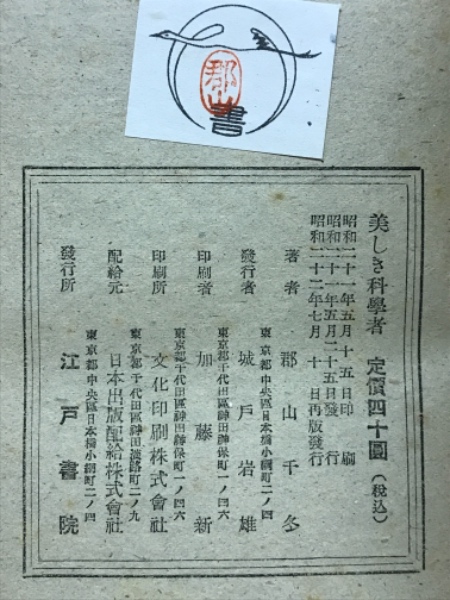 郡山
書
美しき科學者 定價四十圓(税込)
昭和二十一年五月十五日印刷
昭和二十一年五月二十五日發行
昭和二十二年七月十日再版發行
著者 郡山千冬
東京都中央區日本橋小網町二ノ四
發行者 城戸岩雄
東京都千代田區神田神保町一ノ四六
印刷者 加藤新
東京都千代田區神田神保町一ノ四六
印刷所 文化印刷株式會社
東京都千代田區神田淡路町二ノ九
配給元 日本出版配給株式會社
東京都中央區日本橋小網町二ノ四
發行所 江戸書院